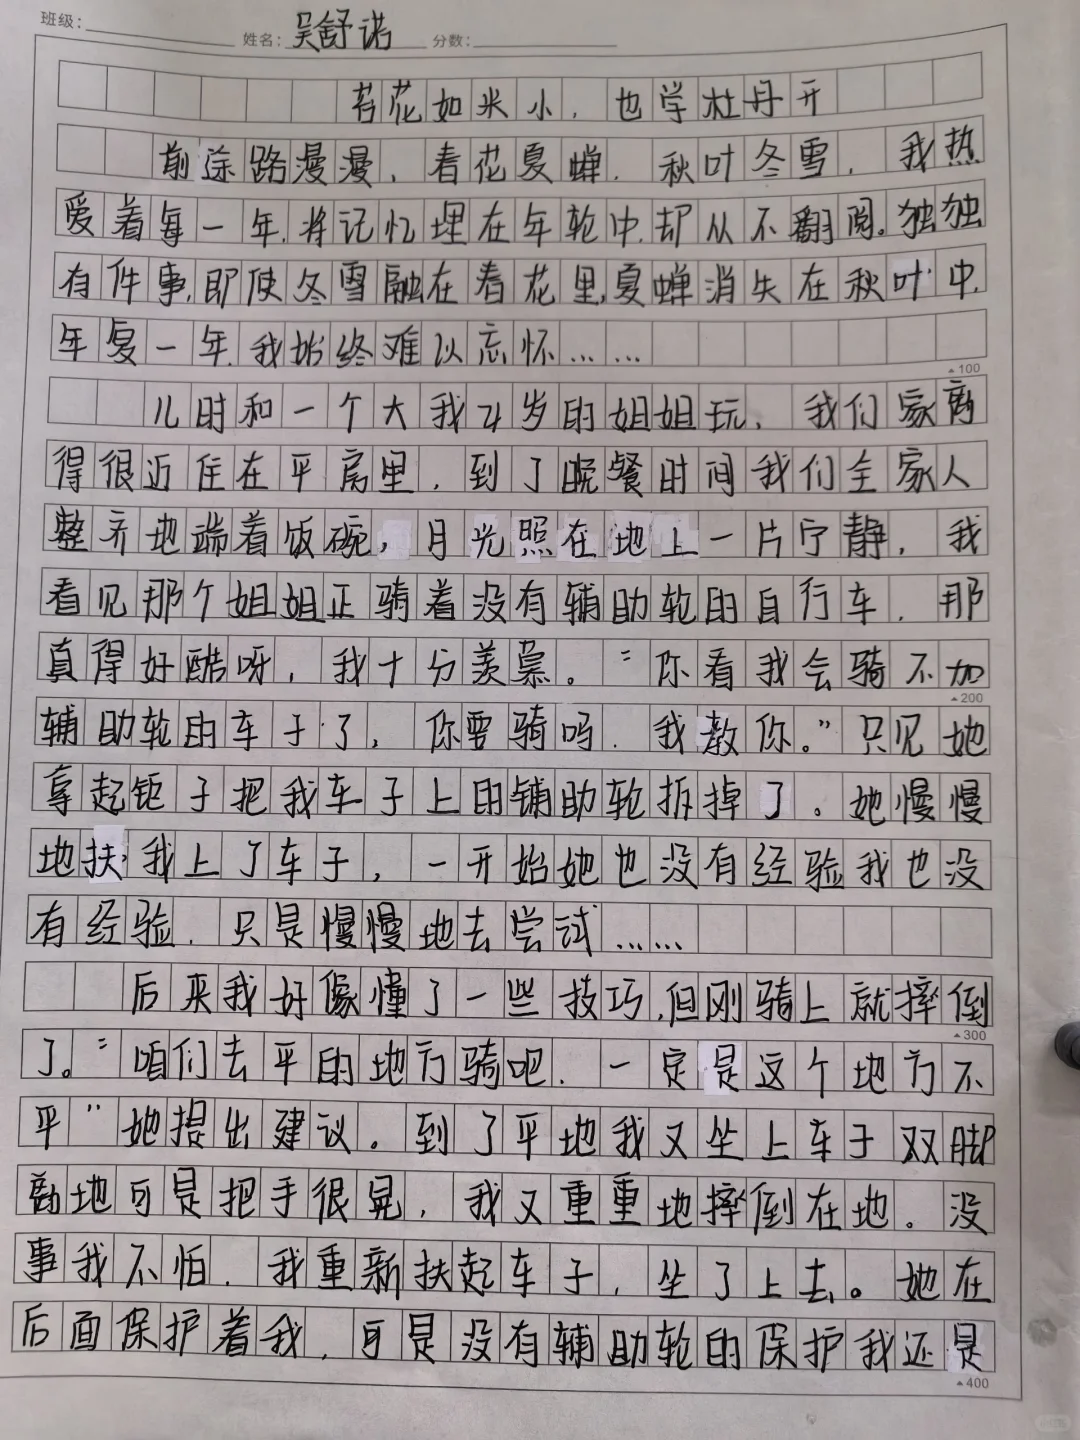 班级: 姓名: 吴舒诺 分数:
苔花如米小,也学牡丹开
前途路漫漫、春花夏蝉.秋叶冬雪,我热
爱着每一年.将记忆埋在年轮中.却从不翻阅。独独
有件事,即使冬雪融在春花里,夏蝉消失在秋叶中,
年复一年.我始终难以忘怀……
100
儿时和一个大我4岁的姐姐玩、我们家离
得很近住在平房里,到了晚餐时间我们全家人
整齐地端着饭碗,月光照在地上一片宁静,我
看见那个姐姐正骑着没有辅助轮的自行车.那
真得好酷呀,我十分羡慕。“你看我会骑不加
200
辅助轮的车子了,你要骑吗.我教你。”只见她
拿起钜子把我车子上的辅助轮拆掉了。她慢慢
地扶我上了车子,一开始她也没有经验我也没
有经验.只是慢慢地去尝试……
后来我好像懂了一些技巧,但刚骑上就摔倒
300
了。“咱们去平的地方骑吧.一定是这个地方不
平”她提出建议。到了平地我又坐上车子双脚
离地可是把手很晃,我又重重地摔倒在地。没
事我不怕.我重新扶起车子,坐了上去。她在
后面保护着我,可是没有辅助轮的保护我还是
400